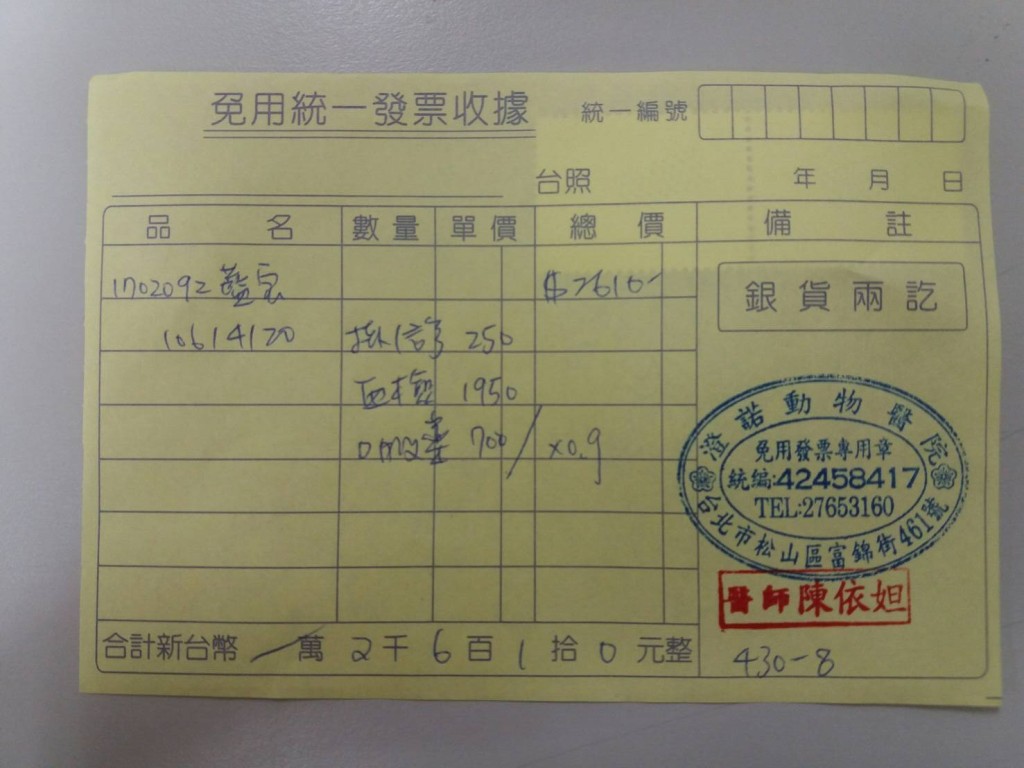 免用統一發票收據
統一編號
台照 年 月 日
品名 數量 單價 總價 備註
1702092 藍宝 $2610-
銀貨兩訖
10614120 掛信 250
血檢 1950
700 / x0.9
澄諾動物醫院
免用發票專用章
統編:42458417
TEL:27653160
台北市松山區富錦街461號
醫師陳依妲
合計新台幣 萬 2 千 6 百 1 拾 0 元整
430-8